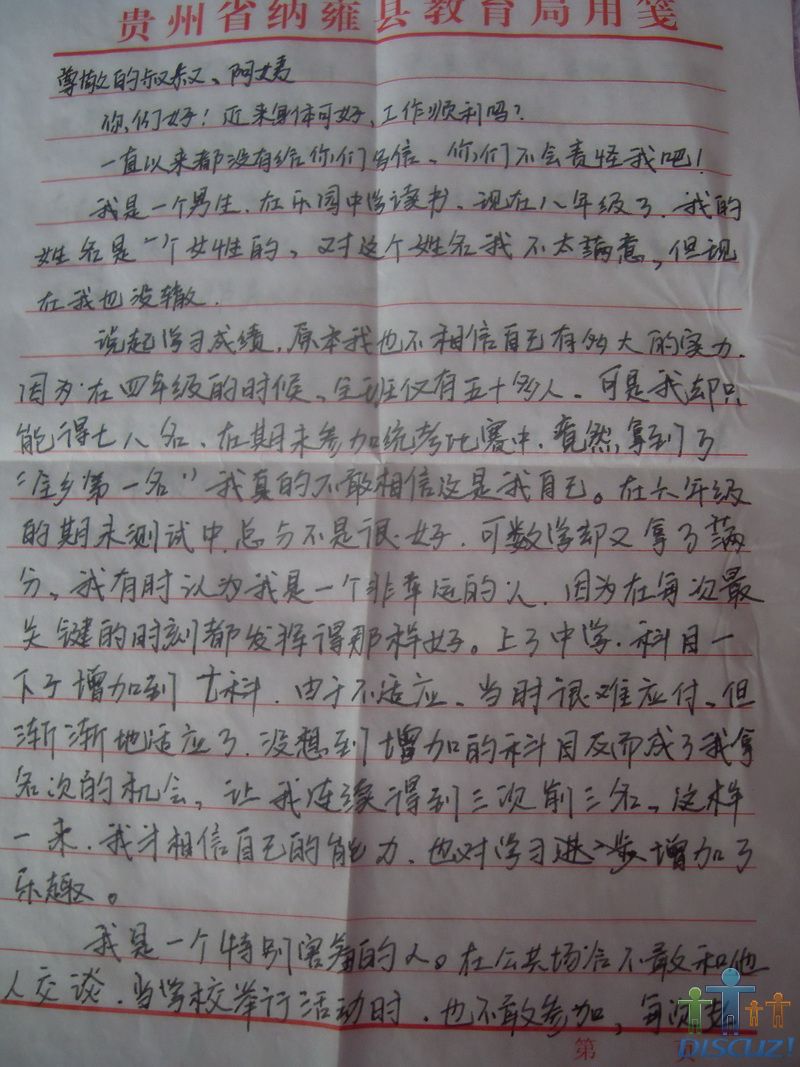 贵州省纳雍县教育局用笺
尊敬的叔叔、阿姨
你们好！近来身体可好，工作顺利吗？
一直以来都没有给你们写信、你们不会责怪我吧！
我是一个男生．在乐园中学读书、现在八年级了．我的
姓名是一个女性的、对这个姓名我不太满意，但现
在我也没辙．
说起学习成绩，原本我也不相信自己有多大的实力．
因为在四年级的时候、全班仅有五十多人．可是我却只
能得七八名、在期末参加统考比赛中．竟然拿到了
“全乡第一名”我真的不敢相信这是我自己。在六年级
的期末测试中．总分不是很好．可数学却又拿了满
分。我有时认为我是一个非幸运的人．因为在每次最
关键的时刻都发挥得那样好。上了中学．科目一
下子增加到七科．由于不适应、当时很难应付、但
渐渐地适应了．没想到增加的科目反而成了我拿
名次的机会，让我连续得到三次前三名。这样
一来．我才相信自己的能力．也对学习进一步增加了
乐趣。
我是一个特别害羞的人。在公共场合不敢和他
人交谈．当学校举行活动时．也不敢参加，每次
第 页
DISCUZ!